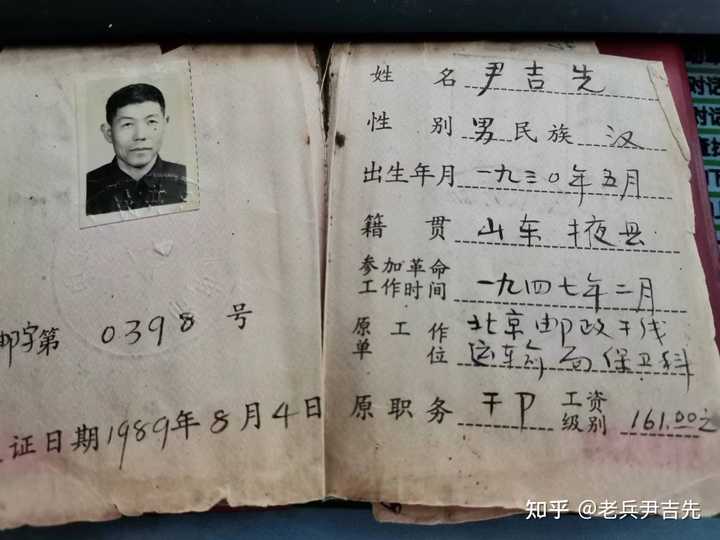 邮字第 0398 号
证日期1989年8月4日
姓名 尹吉先
性别 男 民族 汉
出生年月 一九三〇年五月
籍贯 山东掖县
参加革命
工作时间 一九四七年二月
原工作 北京邮政干线
单位 运输局保卫科
原职务 干部 工资
级别 161.00元
知乎 @老兵尹吉先